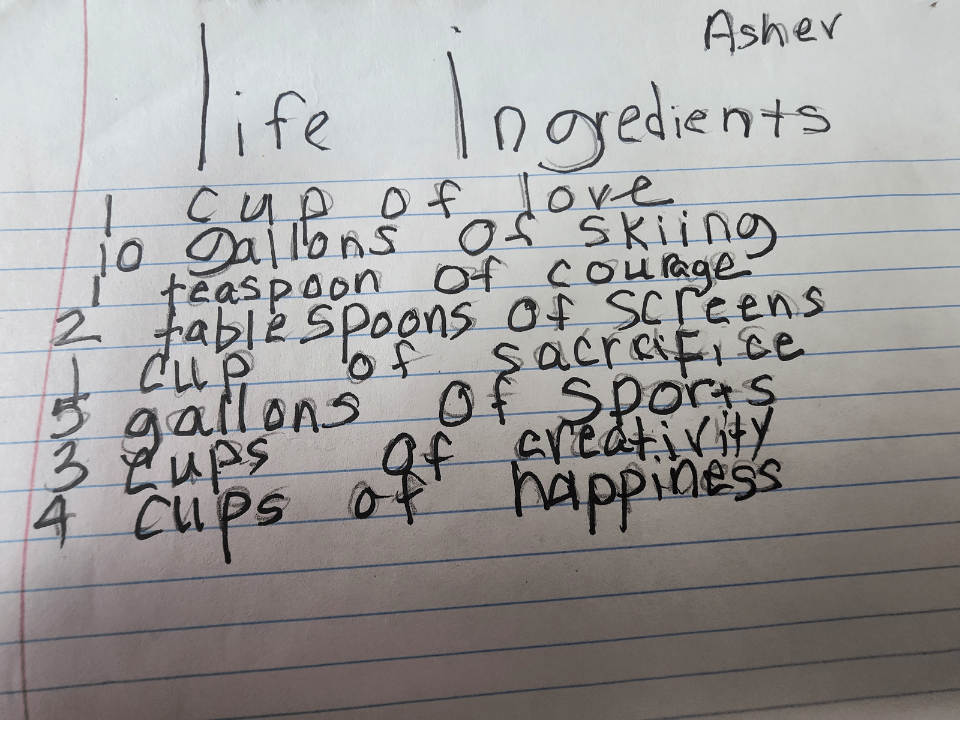 Asher
life Ingredients
1 cup of love
10 gallons of skiing
1 teaspoon of courage
2 tablespoons of screens
1 cup of sacraifice
5 gallons of sports
3 cups of creativity
4 cups of happiness